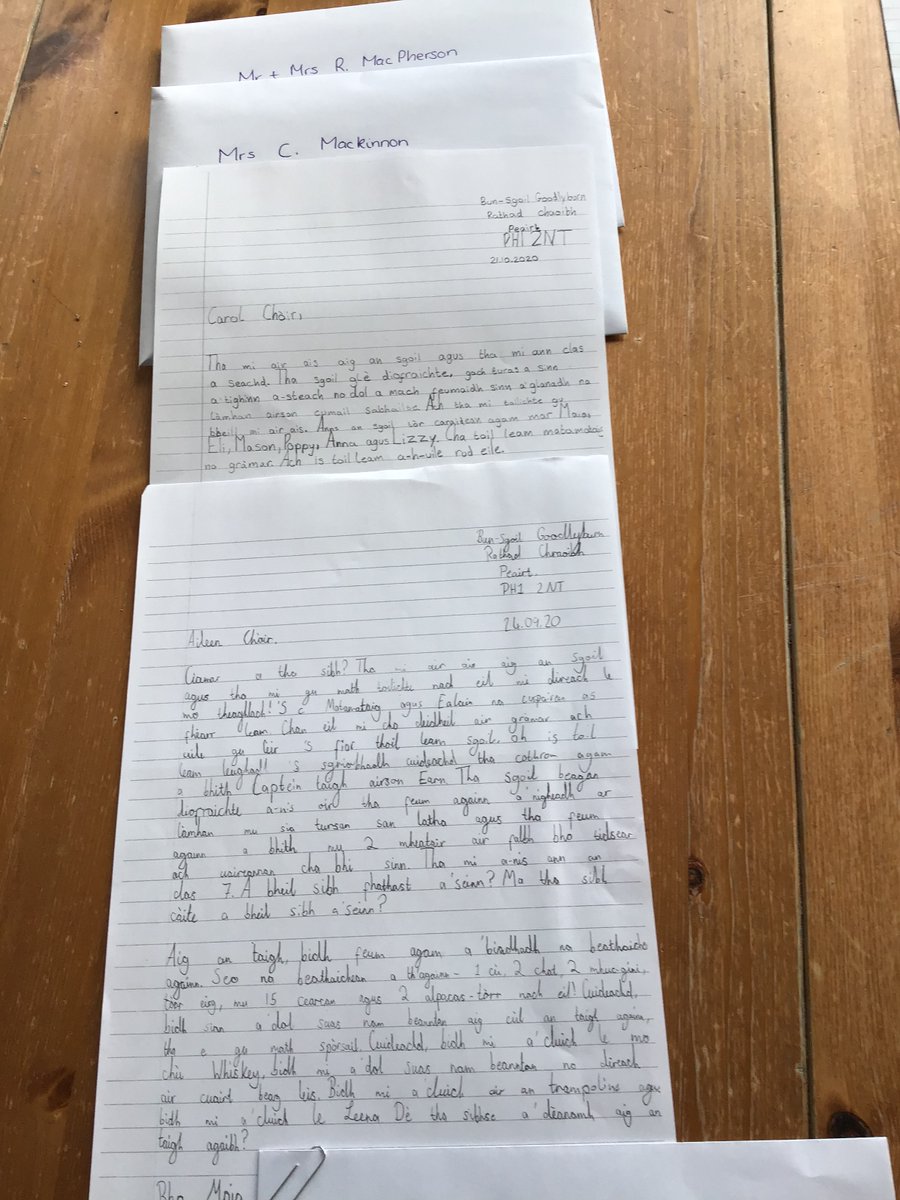 Mr + Mrs R. MacPherson
Mrs C. Mackinnon
Bun-Sgoil Goodlyburn
Rathad chraoibh
Peairt
PH1 2NT
21.10.2020
Carol Chàir,
Tha mi air ais aig an sgoil agus tha mi ann clas
a seachd. Tha sgoil glè diofraichte, gach turas a sinn
a tighinn a-steach no dol a mach feumaidh sinn a'glanadh na
làmhan airson cumail sabhailte Ach tha mi toilichte gu
bheil mi air ais. Anns an sgoil tòrr caraidean agam mar Maia,
Eli, Mason, Poppy, Anna agus Lizzy. Cha toil leam matamataig
no gràmar. Ach is toil leam a-h-uile rud eile.
Bun-Sgoil Goodlyburn
Rathad Chraoibh
Peairt.
PH1 2NT
24.09.20
Aileen Chàir.
Ciamar a tha sibh? Tha mi air ais aig an sgoil
agus tha mi gu math toilichte nad eil mi dìreach le
mo theaghlach! 'S e Matamataig agus Ealain na cuspairan as
fheàrr leam. Chan eil mi cho deidheil air gràmar ach
uile gu lèir 's fìor thoil leam sgoil. oh is toil
leam leughadh 's sgrìobhadh cuideachd tha cothrom agam
a bhith Captein taigh airson Earn. Tha sgoil beagan
diofraichte a-nis oir tha feum againn a'nigheadh ar
làmhan mu sia tursan san latha agus tha feum
againn a bhith mu 2 mheatair air falbh bho tidsear
ach uaireannan cha bhi sinn. Tha mi a-nis ann an
clas 7. A bheil sibh phathast a'seinn? Ma tha sibh
càite a bheil sibh a'seinn?
Aig an taigh, bidh feum agam a'biadhadh na beathaichean
againn. Seo na beathaichean a th'againn - 1 cù, 2 chat, 2 mhuc-gini,
tòrr eisg, mu 15 cearcan agus 2 alpacas - tòrr nach eil! Cuideachd,
bidh sinn a'dol suas nam beanntan aig cùl an taigh againn,
tha e gu math spòrsail. Cuideachd, bidh mi a'cluich le mo
chù Whiskey, bidh mi a'dol suas nam beanntan no dìreach
air cuairt beag leis. Bidh mi a'cluich air an trampoline agus
bidh mi a'cluich le Leena Dè tha sibhse a'dèanamh aig an
taigh agaibh?
Bho Maia